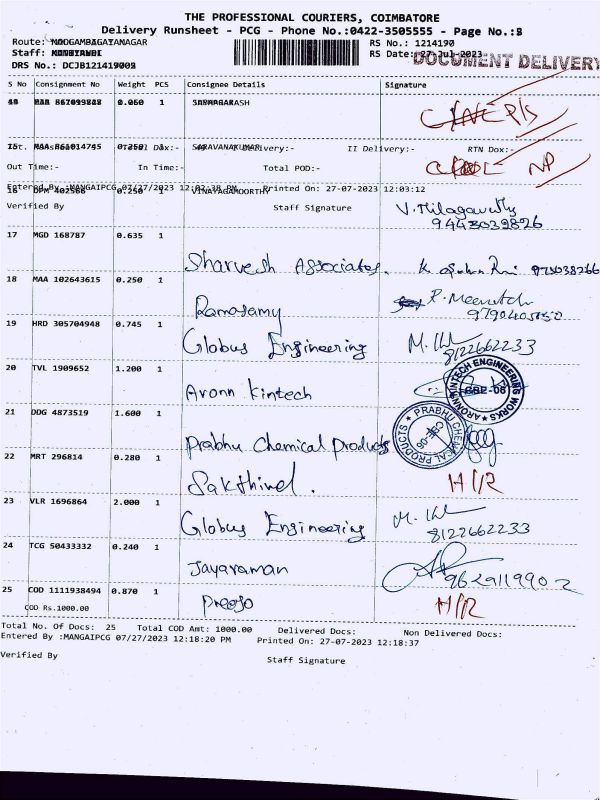 THE PROFESSIONAL COURIERS, COIMBATORE
Delivery Runsheet - PCG - Phone No.:0422-3505555 - Page No.:
Route: RS No.: 1214190
Staff: RS Date: 27-Jul-2023 DOCUMENT DELIVERY
DRS No.: DCJB1214190
S No Consignment No Weight PCS Consignee Details Signature
1
15 MAA 861014745 0.250 1 SARAVANAKUMAR II Delivery:- RTN Dox:-
Out Time:- In Time:- Total POD:-
NP
Entered By :MANGAIPCG 07/27/2023 12:02:38 PM Printed On: 27-07-2023 12:03:12
16 DPM 402566 0.250 1 VINAYAGAMOORTHY
Verified By Staff Signature
V. Thilagavathy
9443039826
17 MGD 168787 0.635 1
Sharvesh Associates.
18 MAA 102643615 0.250 1
Ramasamy
19 HRD 305704948 0.745 1
Globus Engineering
8122662233
20 TVL 1909652 1.200 1
Aronn Kintech
ARONN KINTECH ENGINEERING WORKS
CBE-08
21 DDG 4873519 1.600 1
Prabhu Chemical Products
PRABHU CHEMICAL PRODUCTS
22 MRT 296814 0.280 1
Sakthivel.
H/R
23 VLR 1696864 2.000 1
Globus Engineering
8122662233
24 TCG 50433332 0.240 1
Jayaraman
9629119902
25 COD 1111938494 0.870 1
H/R
COD Rs.1000.00
Total No. Of Docs: 25 Total COD Amt: 1000.00 Delivered Docs: Non Delivered Docs:
Entered By :MANGAIPCG 07/27/2023 12:18:20 PM Printed On: 27-07-2023 12:18:37
Verified By Staff Signature